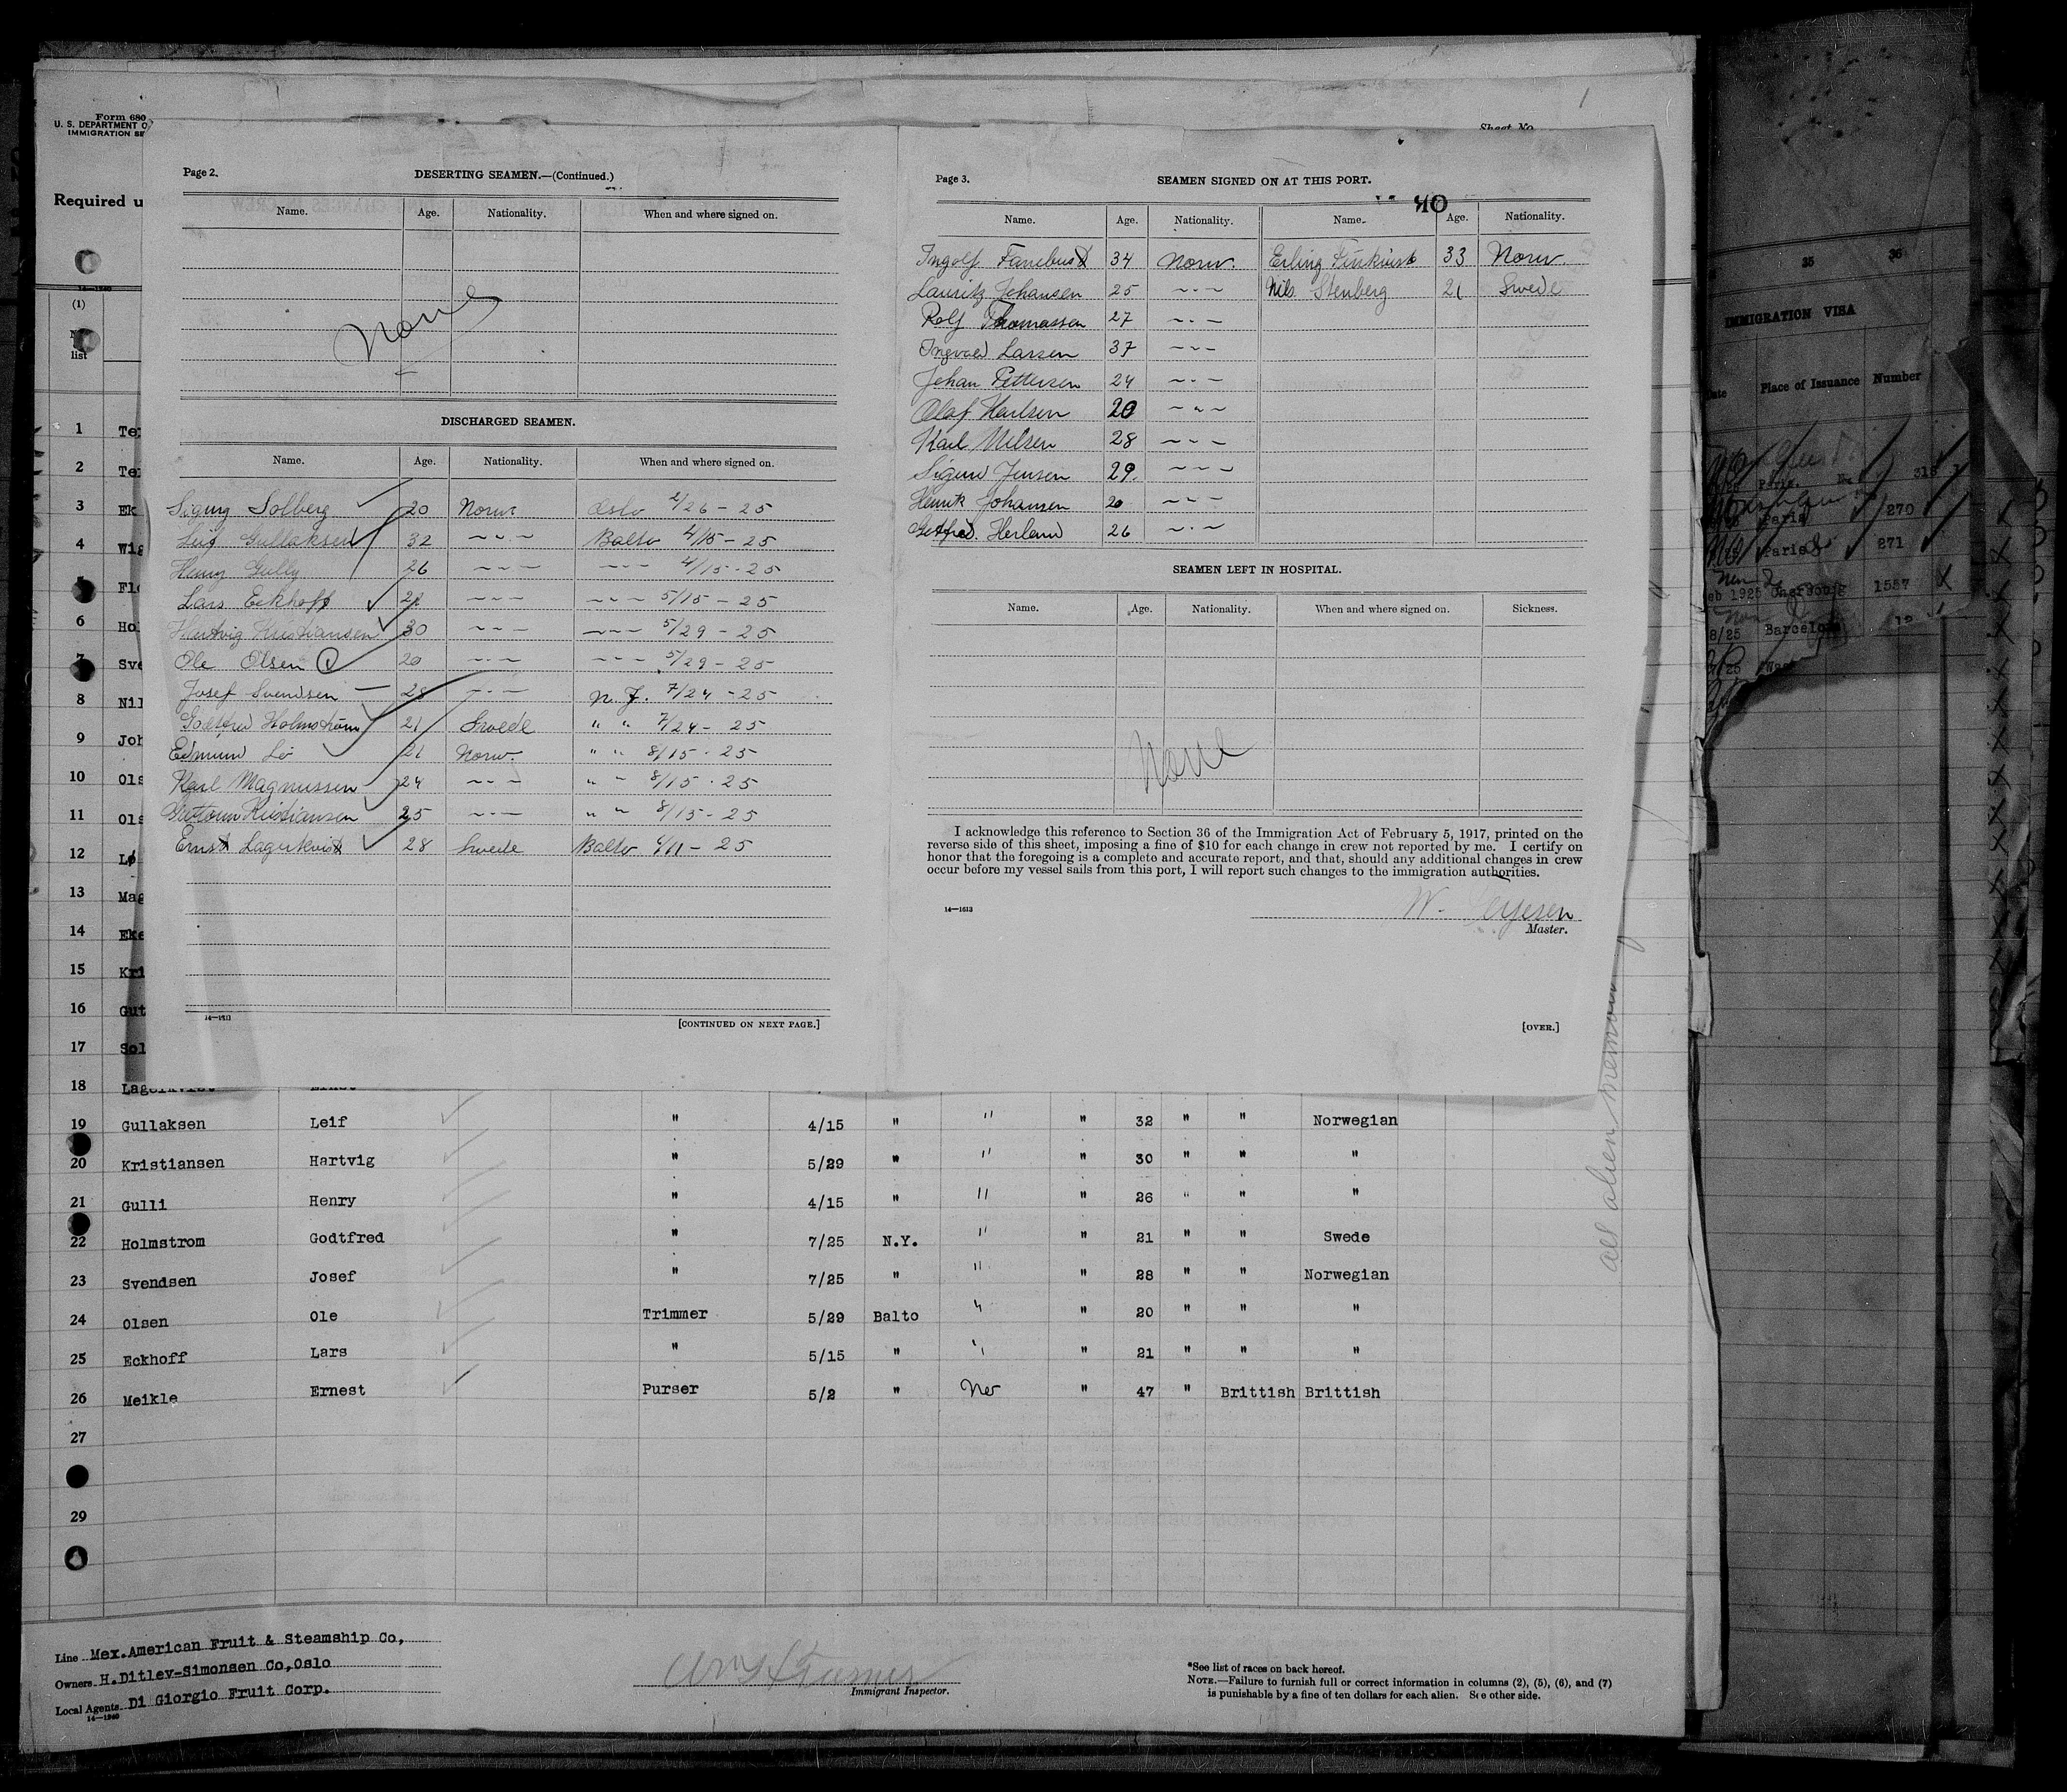 Form 680
U. S. DEPARTMENT O
IMMIGRATION SE
Sheet No.
1
Required u
(1)
list
Page 2.
DESERTING SEAMEN.—(Continued.)
Name. Age. Nationality. When and where signed on.
None
DISCHARGED SEAMEN.
Name. Age. Nationality. When and where signed on.
Sigurg Solberg 20 Norw. Oslo 2/26 - 25
Leif Gullaksen 32 " Balto 4/15 - 25
Henry Gully 26 " " 4/15 - 25
Lars Eckhoff 21 " " 5/15 - 25
Hartvig Kristiansen 30 " " 5/29 - 25
Ole Olsen 20 " " 5/29 - 25
Josef Svendsen 28 " N.Y. 7/24 - 25
Godtfred Holmström 21 Swede " " 7/24 - 25
Edmund Lö 21 Norw. " " 8/15 - 25
Karl Magnussen 24 " " " 8/15 - 25
Kristiansen 25 " " " 8/15 - 25
Ernst Lagerkvist 28 Swede Balto 6/11 - 25
14—1613
[CONTINUED ON NEXT PAGE.]
Page 3.
SEAMEN SIGNED ON AT THIS PORT.
Name. Age. Nationality. Name. Age. Nationality.
Ingolf Fanebust 34 Norw. Erling 33 Norw.
Lauritz Johansen 25 " Nils Stenberg 21 Swede
Rolf Thomassen 27 "
Ingvald Larsen 37 "
Johan Pettersen 24 "
Olaf Karlsen 20 "
Karl Nilsen 28 "
Sigurd Jensen 29 "
Henrik Johansen 20 "
Gotfred Herland 26 "
SEAMEN LEFT IN HOSPITAL.
Name. Age. Nationality. When and where signed on. Sickness.
None
I acknowledge this reference to Section 36 of the Immigration Act of February 5, 1917, printed on the
reverse side of this sheet, imposing a fine of $10 for each change in crew not reported by me. I certify on
honor that the foregoing is a complete and accurate report, and that, should any additional changes in crew
occur before my vessel sails from this port, I will report such changes to the immigration authorities.
14—1613
W. Terjesen
Master.
[OVER.]
1 Ter
2 Ter
3 Ek
4 Wig
5 Flo
6 Hol
7 Sve
8 Nil
9 Joh
10 Ols
11 Ols
12 Lø
13 Mag
14 Eke
15 Kri
16 Gut
17 Sol
18 Lagerkvist Ernst
19 Gullaksen Leif " 4/15 " " " 32 " " Norwegian
20 Kristiansen Hartvig " 5/29 " " " 30 " " "
21 Gulli Henry " 4/15 " " " 26 " " "
22 Holmstrom Godtfred " 7/25 N.Y. " " 21 " " Swede
23 Svendsen Josef " 7/25 " " " 28 " " Norwegian
24 Olsen Ole Trimmer 5/29 Balto " " 20 " " "
25 Eckhoff Lars " 5/15 " " " 21 " " "
26 Meikle Ernest Purser 5/2 " " 47 " Brittish Brittish
27
29
all alien
Line Mex.American Fruit & Steamship Co,
Owners H.Ditlev-Simonsen Co,Oslo
Local Agents Di Giorgio Fruit Corp.
14—1240
Immigrant Inspector.
*See list of races on back hereof.
NOTE.—Failure to furnish full or correct information in columns (2), (5), (6), and (7)
is punishable by a fine of ten dollars for each alien. See other side.
35 36
IMMIGRATION VISA
Date Place of Issuance Number
Paris. 318
Paris 270
Paris 271
Feb 1925 Cherbourg 1557
8/25 Barcelona 12